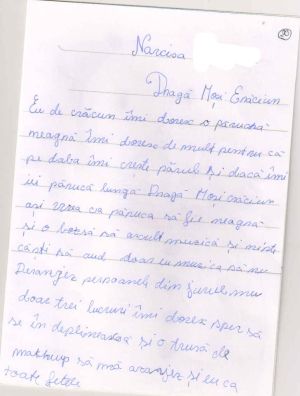 20
Narcisa
Dragă Moși Crăciun
Eu de crăciun îmi doresc o părucă
neagră îmi doresc de mult pentru că
pe daba îmi crește părul și dacă îmi
iei părucă lungă Dragă Moși crăciun
ași vrea ca păruca să fie neagră
și o boxsă să ascult muzică și niște
căști să aud doar eu muzica să nu
Deranjez persoaneli din jurul meu
doar trei lucruri îmi dorex sper să
se în deplinească și o trusă de
makhup să mă aranjez și eu ca
toate fetele